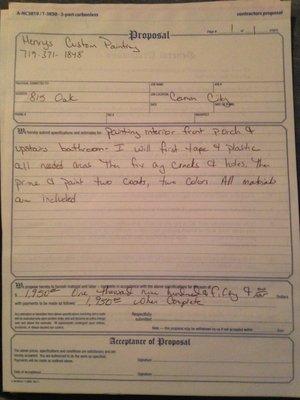 A-NC3819 / T-3850 - 3-part carbonless
contractors proposal
Proposal
Page #
of
pages
Henrys Custom Painting
719-371-1848
PROPOSAL SUBMITTED TO:
JOB NAME
JOB #
ADDRESS
815 Oak
JOB LOCATION
Canon City
DATE
DATE OF PLANS
PHONE #
FAX #
ARCHITECT
We hereby submit specifications and estimates for: Painting interior front porch &
upstairs bathroom - I will first tape & plastic
all needed areas then fix any cracks & holes, then
prime & paint two coats, two colors. All materials
are included
We propose hereby to furnish material and labor - complete in accordance with the above specifications for the sum of:
1,950.00 One thousand nine hundred & fifty &
Dollars
with payments to be made as follows: 1,950.00 when complete
Any alteration or deviation from above specifications involving extra costs
will be executed only upon written order, and will become an extra charge
over and above the estimate. All agreements contingent upon strikes,
accidents, or delays beyond our control.
Respectfully
submitted
Note — this proposal may be withdrawn by us if not accepted within
days.
Acceptance of Proposal
The above prices, specifications and conditions are satisfactory and are
hereby accepted. You are authorized to do the work as specified.
Payments will be made as outlined above.
Signature
Date of Acceptance
Signature